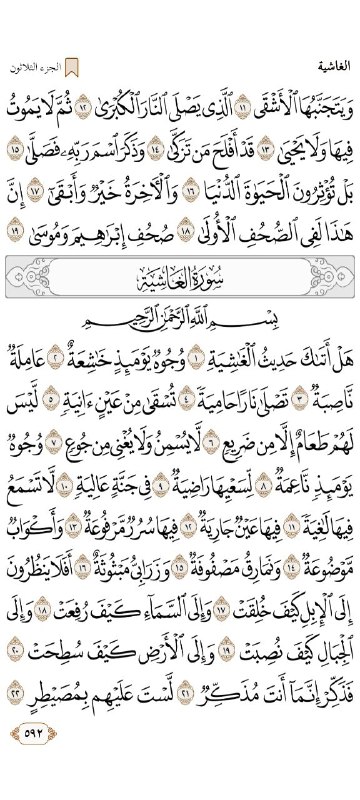 الغاشية
الجزء الثلاثون
وَيَتَجَنَّبُهَا ٱلْأَشْقَى ١١ ٱلَّذِي يَصْلَى ٱلنَّارَ ٱلْكُبْرَىٰ ١٢ ثُمَّ لَا يَمُوتُ
فِيهَا وَلَا يَحْيَىٰ ١٣ قَدْ أَفْلَحَ مَن تَزَكَّىٰ ١٤ وَذَكَرَ ٱسْمَ رَبِّهِۦ فَصَلَّىٰ ١٥
بَلْ تُؤْثِرُونَ ٱلْحَيَوٰةَ ٱلدُّنْيَا ١٦ وَٱلْأَخِرَةُ خَيْرٌ وَأَبْقَىٰٓ ١٧ إِنَّ
هَٰذَا لَفِي ٱلصُّحُفِ ٱلْأُولَىٰ ١٨ صُحُفِ إِبْرَٰهِيمَ وَمُوسَىٰ ١٩
سُورَةُ الغَاشِيَة
بِسْمِ ٱللَّهِ ٱلرَّحْمَٰنِ ٱلرَّحِيمِ
هَلْ أَتَىٰكَ حَدِيثُ ٱلْغَٰشِيَةِ ١ وُجُوهٌ يَوْمَئِذٍ خَٰشِعَةٌ ٢ عَامِلَةٌ
نَّاصِبَةٌ ٣ تَصْلَىٰ نَارًا حَامِيَةً ٤ تُسْقَىٰ مِنْ عَيْنٍ ءَانِيَةٍ ٥ لَّيْسَ
لَهُمْ طَعَامٌ إِلَّا مِن ضَرِيعٍ ٦ لَّا يُسْمِنُ وَلَا يُغْنِي مِن جُوعٍ ٧ وُجُوهٌ
يَوْمَئِذٍ نَّاعِمَةٌ ٨ لِّسَعْيِهَا رَاضِيَةٌ ٩ فِي جَنَّةٍ عَالِيَةٍ ١٠ لَّا تَسْمَعُ
فِيهَا لَٰغِيَةً ١١ فِيهَا عَيْنٌ جَارِيَةٌ ١٢ فِيهَا سُرُرٌ مَّرْفُوعَةٌ ١٣ وَأَكْوَابٌ
مَّوْضُوعَةٌ ١٤ وَنَمَارِقُ مَصْفُوفَةٌ ١٥ وَزَرَابِيُّ مَبْثُوثَةٌ ١٦ أَفَلَا يَنظُرُونَ
إِلَى ٱلْإِبِلِ كَيْفَ خُلِقَتْ ١٧ وَإِلَى ٱلسَّمَآءِ كَيْفَ رُفِعَتْ ١٨ وَإِلَى
ٱلْجِبَالِ كَيْفَ نُصِبَتْ ١٩ وَإِلَى ٱلْأَرْضِ كَيْفَ سُطِحَتْ ٢٠
فَذَكِّرْ إِنَّمَآ أَنتَ مُذَكِّرٌ ٢١ لَّسْتَ عَلَيْهِم بِمُصَيْطِرٍ ٢٢
٥٩٢